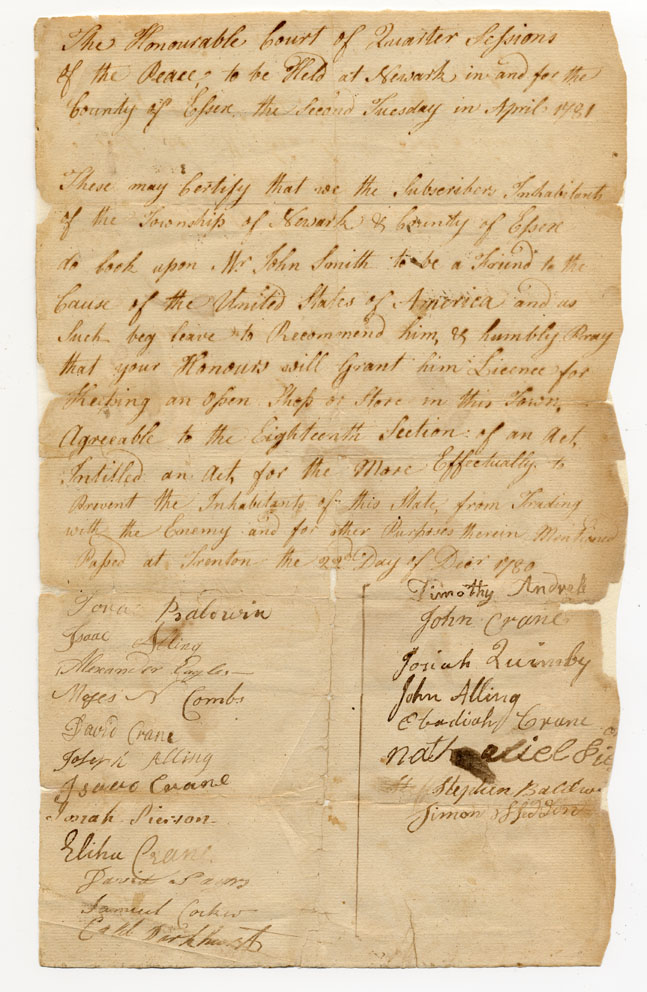 The Honourable Court of Quarter Sessions
of the Peace, to be Held at Newark in and for the
County of Essex the Second Tuesday in April 1781
These may Certify that we the Subscribers Inhabitants
of the Township of Newark & County of Essex
do look upon Mr John Smith to be a Friend to the
Cause of the United States of America and as
Such beg leave to Recommend him, & humbly Pray
that your Honours will Grant him Licence for
Keeping an open Shop or Store in this Town,
Agreeable to the Eighteenth Section of an Act,
Intitled an Act, for the More Effectually to
Prevent the Inhabitants of this State, from Trading
with the Enemy and for other Purposes therein Mentioned
Passed at Trenton the 22d Day of Decr 1780
Baldwin
Isaac Alling
Alexander Eagles
Moses N Combs
David Crane
Joseph Alling
Isaac Crane
Jonah Pierson
Elihu Crane
David
Samuel
Parkhurst
Timothy Andrss
John Crane
Josiah Quimby
John Alling
Obadiah Crane
nathaniel
Stephen Baldwin
Simon